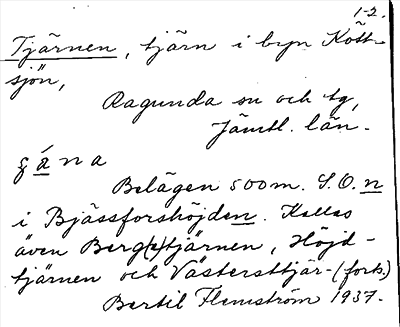 1-2.
Tjärnen, tjärn i byn Kött-
sjön,
Ragunda sn och tg,
Jämtl. län.
Belägen 500m. S.O. n
i Bjässforshöjden. Kallas
även Berg(s)tjärnen, Höjd-
tjärnen och Västersttjär-(forts.)
Bertil Flemström 1937.